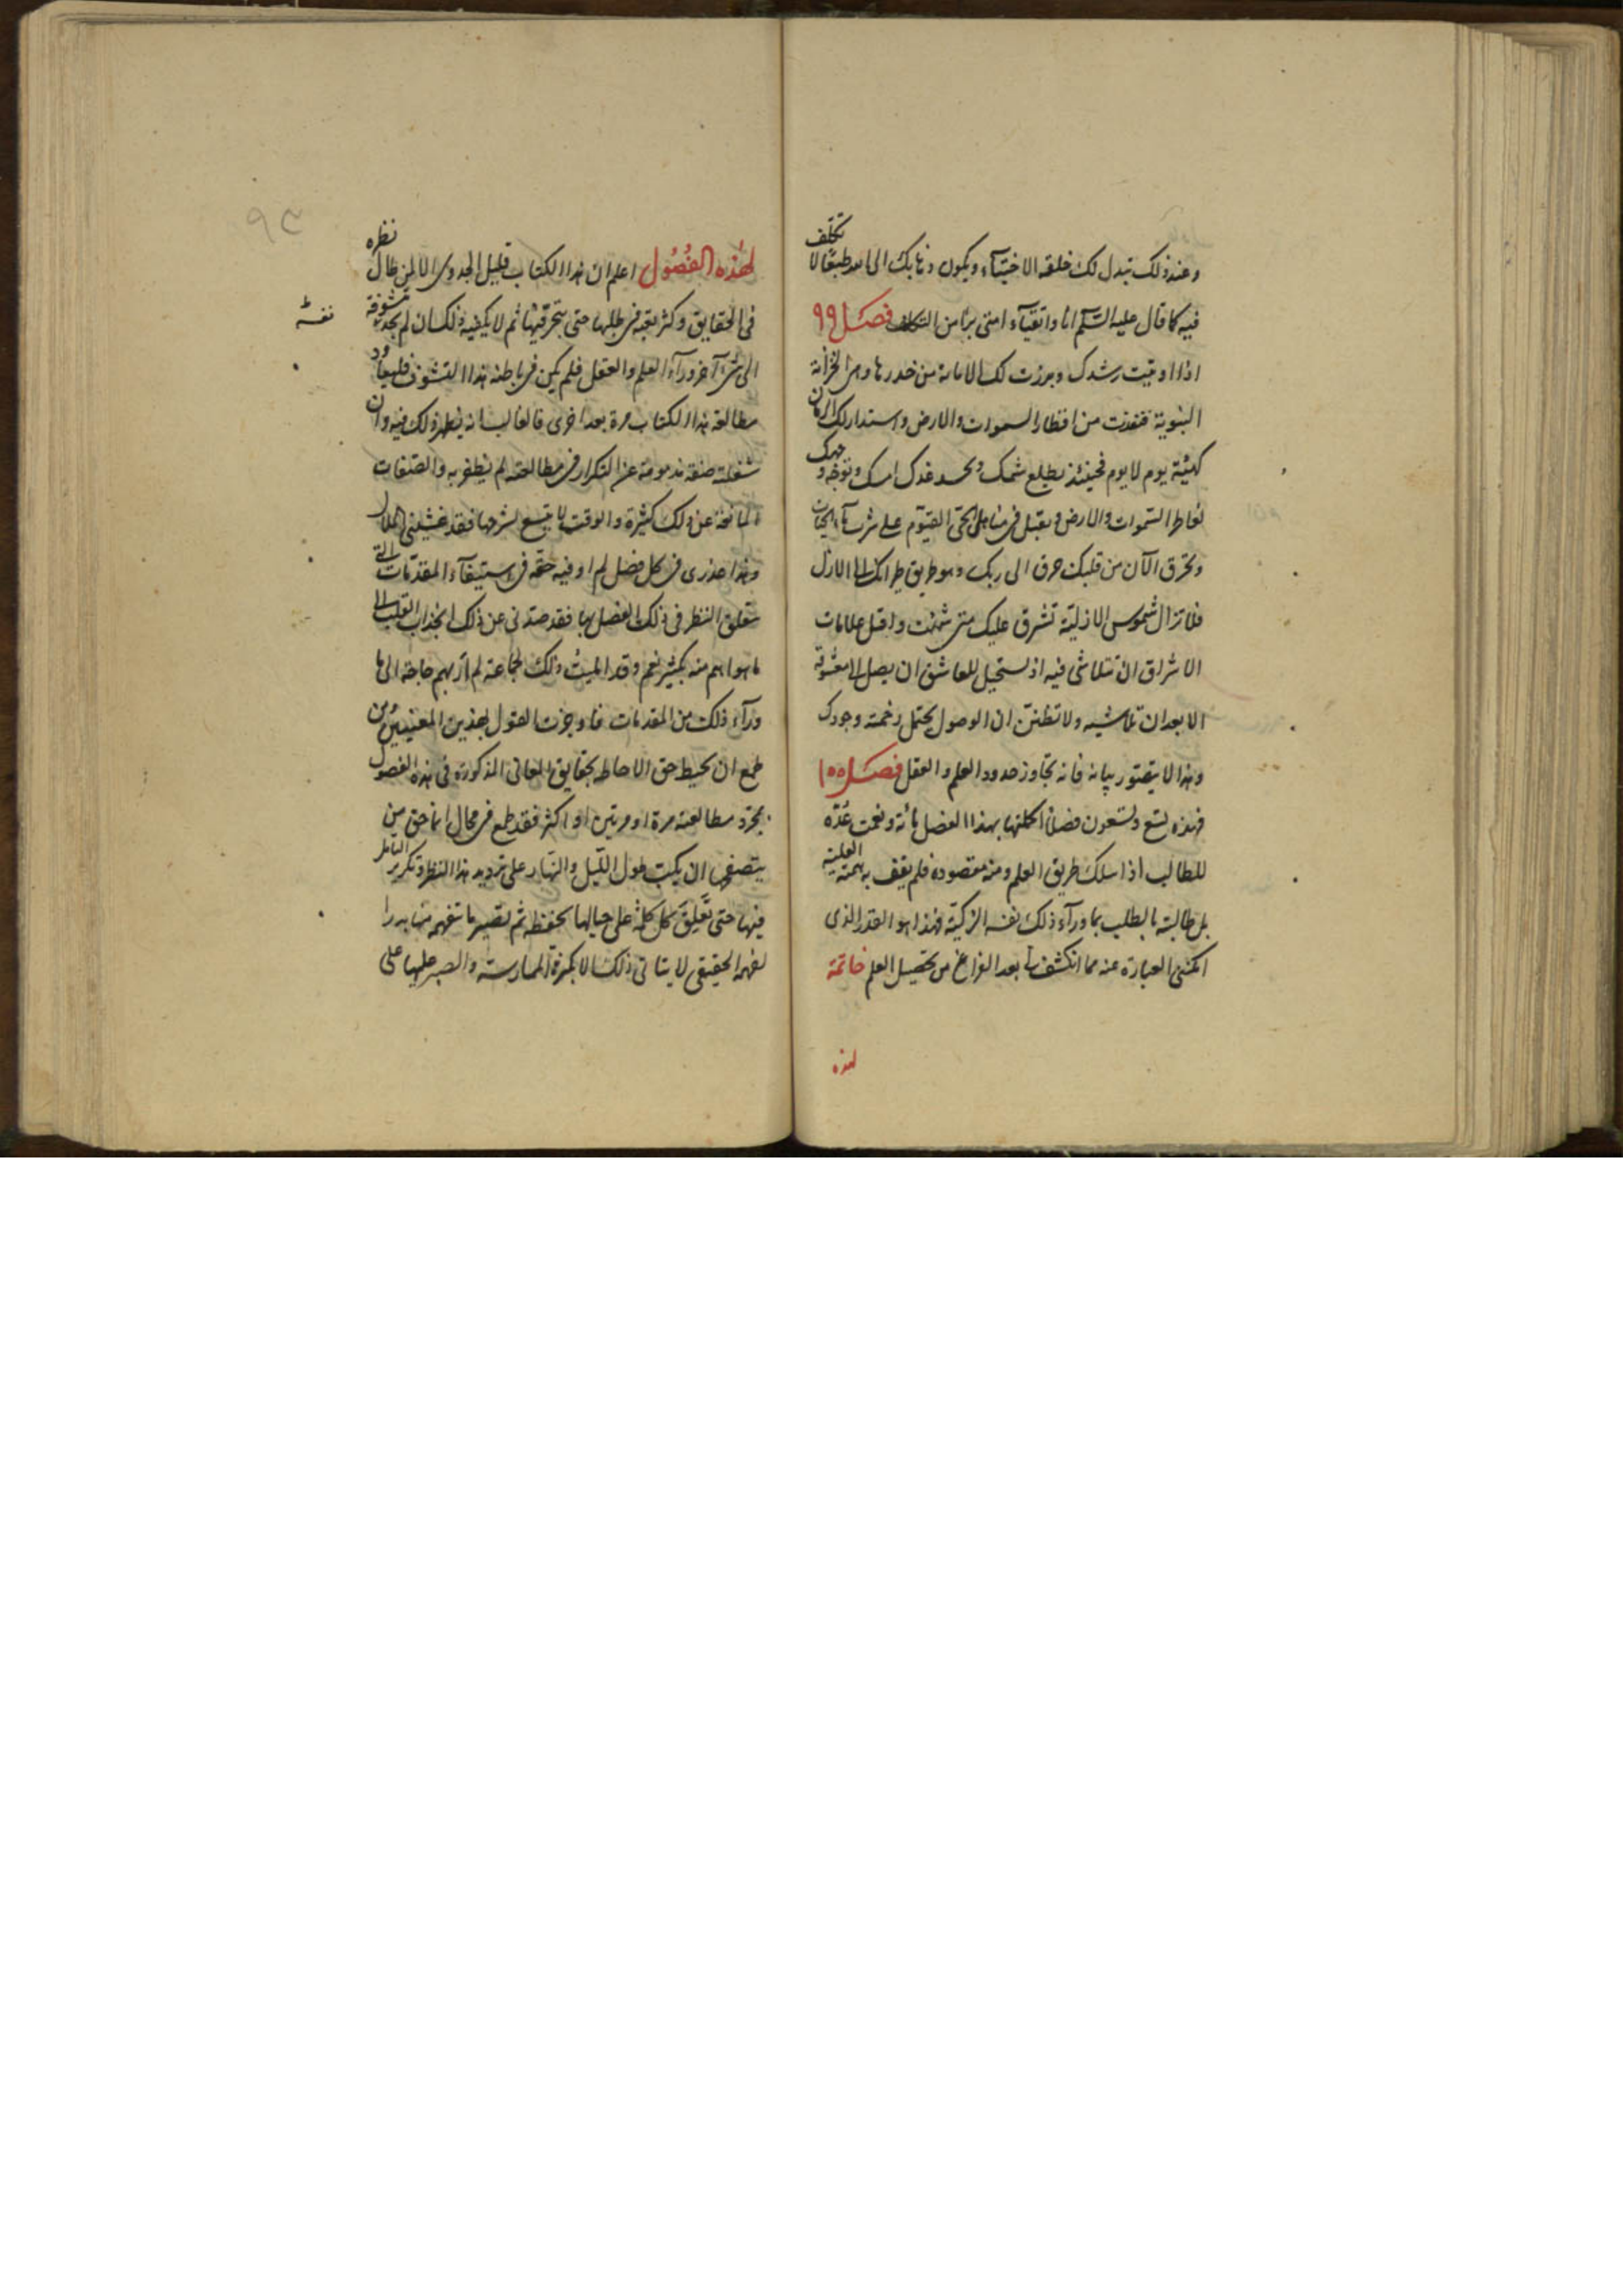 وعند ذلك تبدل لك خلقة الاختيار ويكون ذهابك الى الله طبعا لا تكلف
فيه كما قال عليه السلم انا واتقياء امتى برآء من التكلف فصل ٩٩
اذا اوتيت رشدك وبرزت لك الامانة من خدرها وهى الخزانة
النبوية فنفذت من اقطار السموات والارض واستدار لك الزمان
كهيئة يوم لا يوم فحينئذ يطلع شمسك ويحسد غدك امسك وتوجه وجهك
لفاطر السموات والارض وتقبل فى مناهل الحى القيوم على شرب ماء الحيوان
ويخرق الآن من قلبك خرق الى ربك وهو طريق طيرانك الى الازل
فلا تزال شموس الازلية تشرق عليك متى شئت واقل علامات
الاشراق ان تتلاشى فيه اذ يستحيل للعاشق ان يصل الى معشوقه
الا بعد ان تلاشيه ولا تظنن ان الوصول يحتمل زحمة وجودك
وهذا لا يتصور بيانه فانه تجاوز حدود العلم والعقل فصل ١٠٠
فهذه تسع وتسعون فصلا اكملتها بهذا الفصل مائة ونعمت عدة
للطالب اذا سلك طريق العلم ومنه مقصوده فلم يقف به همته العلية
بل طالبته بالطلب بما وراء ذلك نفسه الزكية فهذا هو القدر الذى
امكننى العبارة عنه مما انكشف لى بعد الفراغ من تحصيل العلم خاتمة
لهذه
لهذه الفصول اعلم ان هذا الكتاب قليل الجدوى الا لمن طال نظره
فى الحقايق وكثر تعبه فى طلبها حتى يتحر فيها ثم لا يكفيه ذلك ان لم يجد متشوفة
نفسه
الى شىء آخر وراء العلم والعقل فلم يكن فى باطنه هذا التشوف فليعاود
مطالعة هذا الكتاب مرة بعد اخرى فالغالب انه يظهر ذلك فيه وان
شغلته صفة مذمومة عن التكرار فى مطالعته لم يظفر به والصفات
المانعة عن ذلك كثيرة والوقت لا يتسع لشرحها فقد غشيتنى الملال
وهذا عذرى فى كل فصل لم اوفيه حقه فى استيفاء المقدمات التى
يتعلق النظر فى ذلك الفصل بها فقد صدنى عن ذلك انجذاب القلب الى
ما هو اهم منه بكثير نعم وقد الميت ذلك لجماعة لم ار بهم حاجة الى ما
وراء ذلك من المقدمات فاوجزت القول لهذين المعنيين ومن
طمع ان يحيط حق الاحاطة بحقايق المعانى المذكورة فى هذه الفصول
بمجرد مطالعته مرة او مرتين او اكثر فقد طمع فى محال انما حق من
يتصفحها ان يكب طول الليل والنهار على ترديد هذا النظر وتكرير التأمل
فيها حتى تعلق كل كلمة على حيالها بحفظه ثم تصير ما تفهمه منها بدرا
لفهمه الحقيقى لا يتاتى ذلك الا بكثرة الممارسة والصبر عليها على